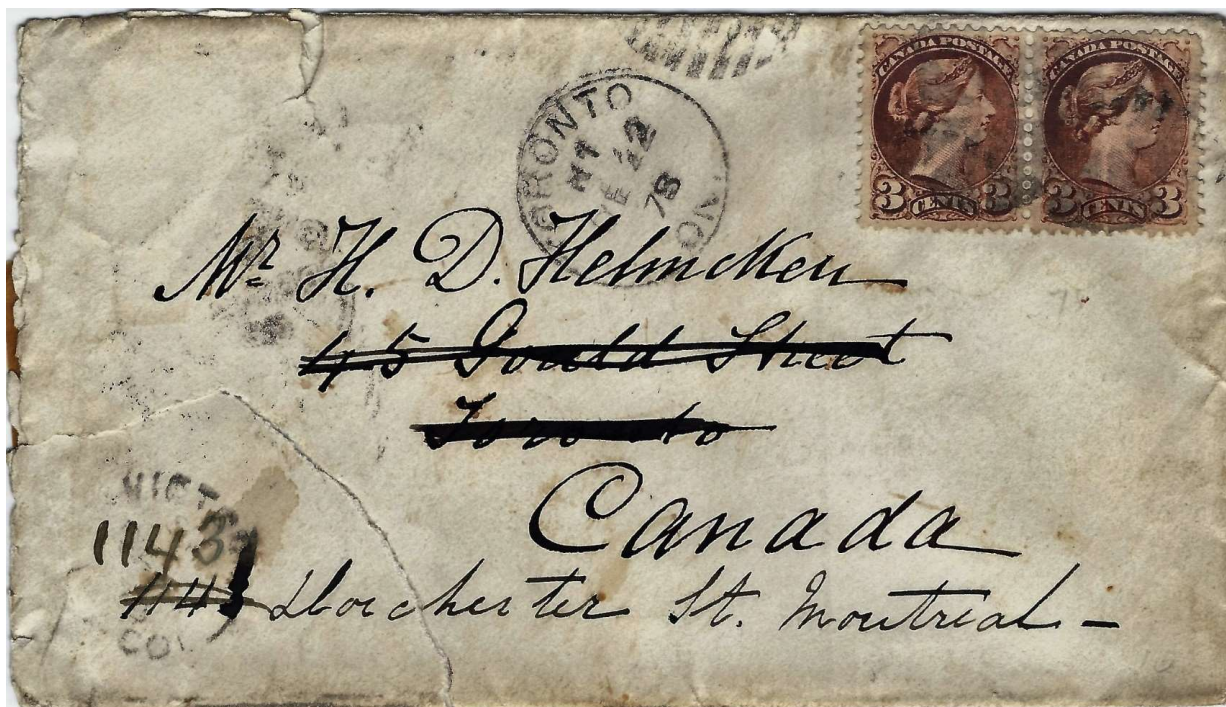 CANADA POSTAGE CANADA POSTAGE
3 CENTS 3 3 CENTS 3
TORONTO
22
78
Mr H. D. Helmcken
45 Gould Street
Toronto
Canada
VICT
1143
1143 Dorchester St. Montreal -
COL